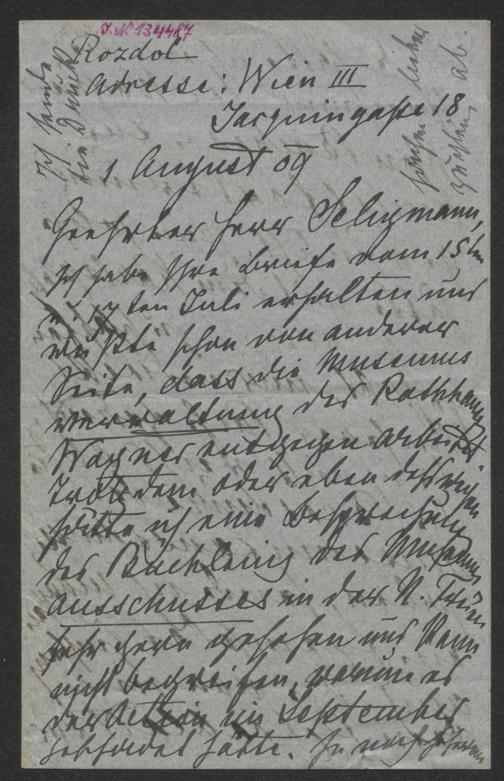 J. N. 134487
Rozdol
Adresse: Wien III
Jacquingasse 18
1 August 09
Geehrter Herr Seligmann,
Ich habe Ihre Briefe vom 15ten
u. 17ten Juli erhalten und
wußte schon von anderer
Seite, dass die Museums
verwaltung der Rathhaus
Wagner entgegen arbeitet
Trotzdem oder eben deßwegen
hätte ich eine Besprechung
des Büchleins des Museums
ausschusses in der N. Freien
sehr gern gesehen und kann
nicht begreifen, warum es
der im September
geschadet hätte.
Ich sende
die